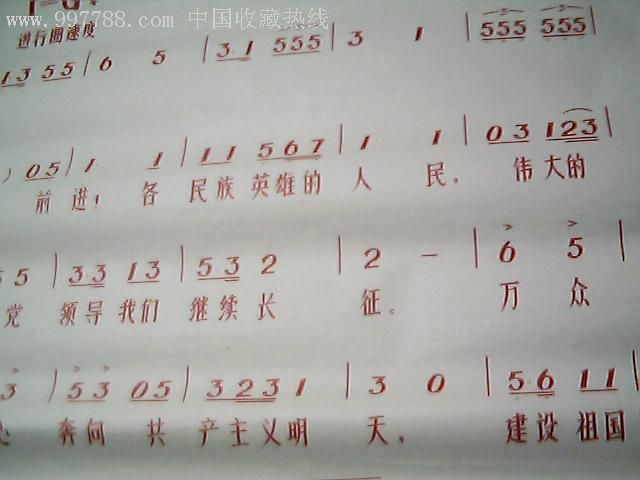 www.997788.com 中国收藏热线
进行曲速度
1 3 5 5 | 6 5 | 3 1 5 5 5 | 3 1 | 5 5 5 5 5 5 |
) 0 5 | 1 1 | 1 1 5 6 7 | 1 1 | 0 3 1 2 3 |
前进！各民族英雄的人民，伟大的
5 | 3 3 1 3 | 5 3 2 | 2 – | 6 5 |
党领导我们继续长征。万众
3 | 5 3 0 5 | 3 2 3 1 | 3 0 | 5 6 1 1 |
心奔向共产主义明天，建设祖国